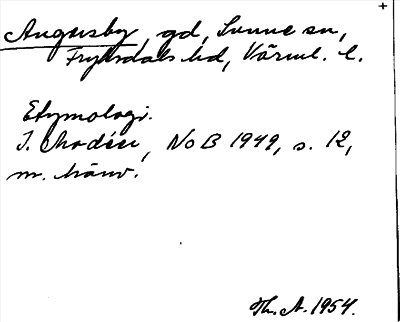 Angersby, gd, Sunne sn,
Fryksdals hd, Värml. l.
Etymologi.
I. Modéer, NoB 1949, s. 12,
m. hänv.
Th. A. 1954.